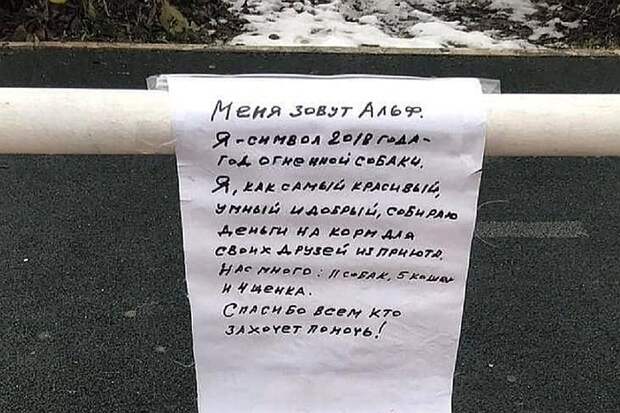 Меня зовут Альф.
Я-символ 2018 года-
год огненной собаки.
Я, как самый красивый,
умный и добрый, собираю
деньги на корм для
своих друзей из приюта.
Нас много: 11 собак, 5 кошек
и 4 щенка.
Спасибо всем кто
захочет помочь!